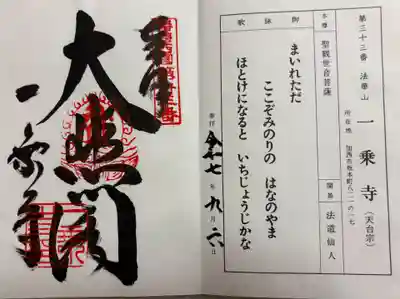 第三十三番 法華山 一乗寺 (天台宗)
所在地 加西市坂本町八二一の一七
本尊 聖観世音菩薩
開基 法道仙人
御詠歌
まいれただ
ここぞみのりの はなのやま
ほとけになると いちじょうじかな
奉拝 令和七年九月六日
奉拝
大悲閣
一乗寺